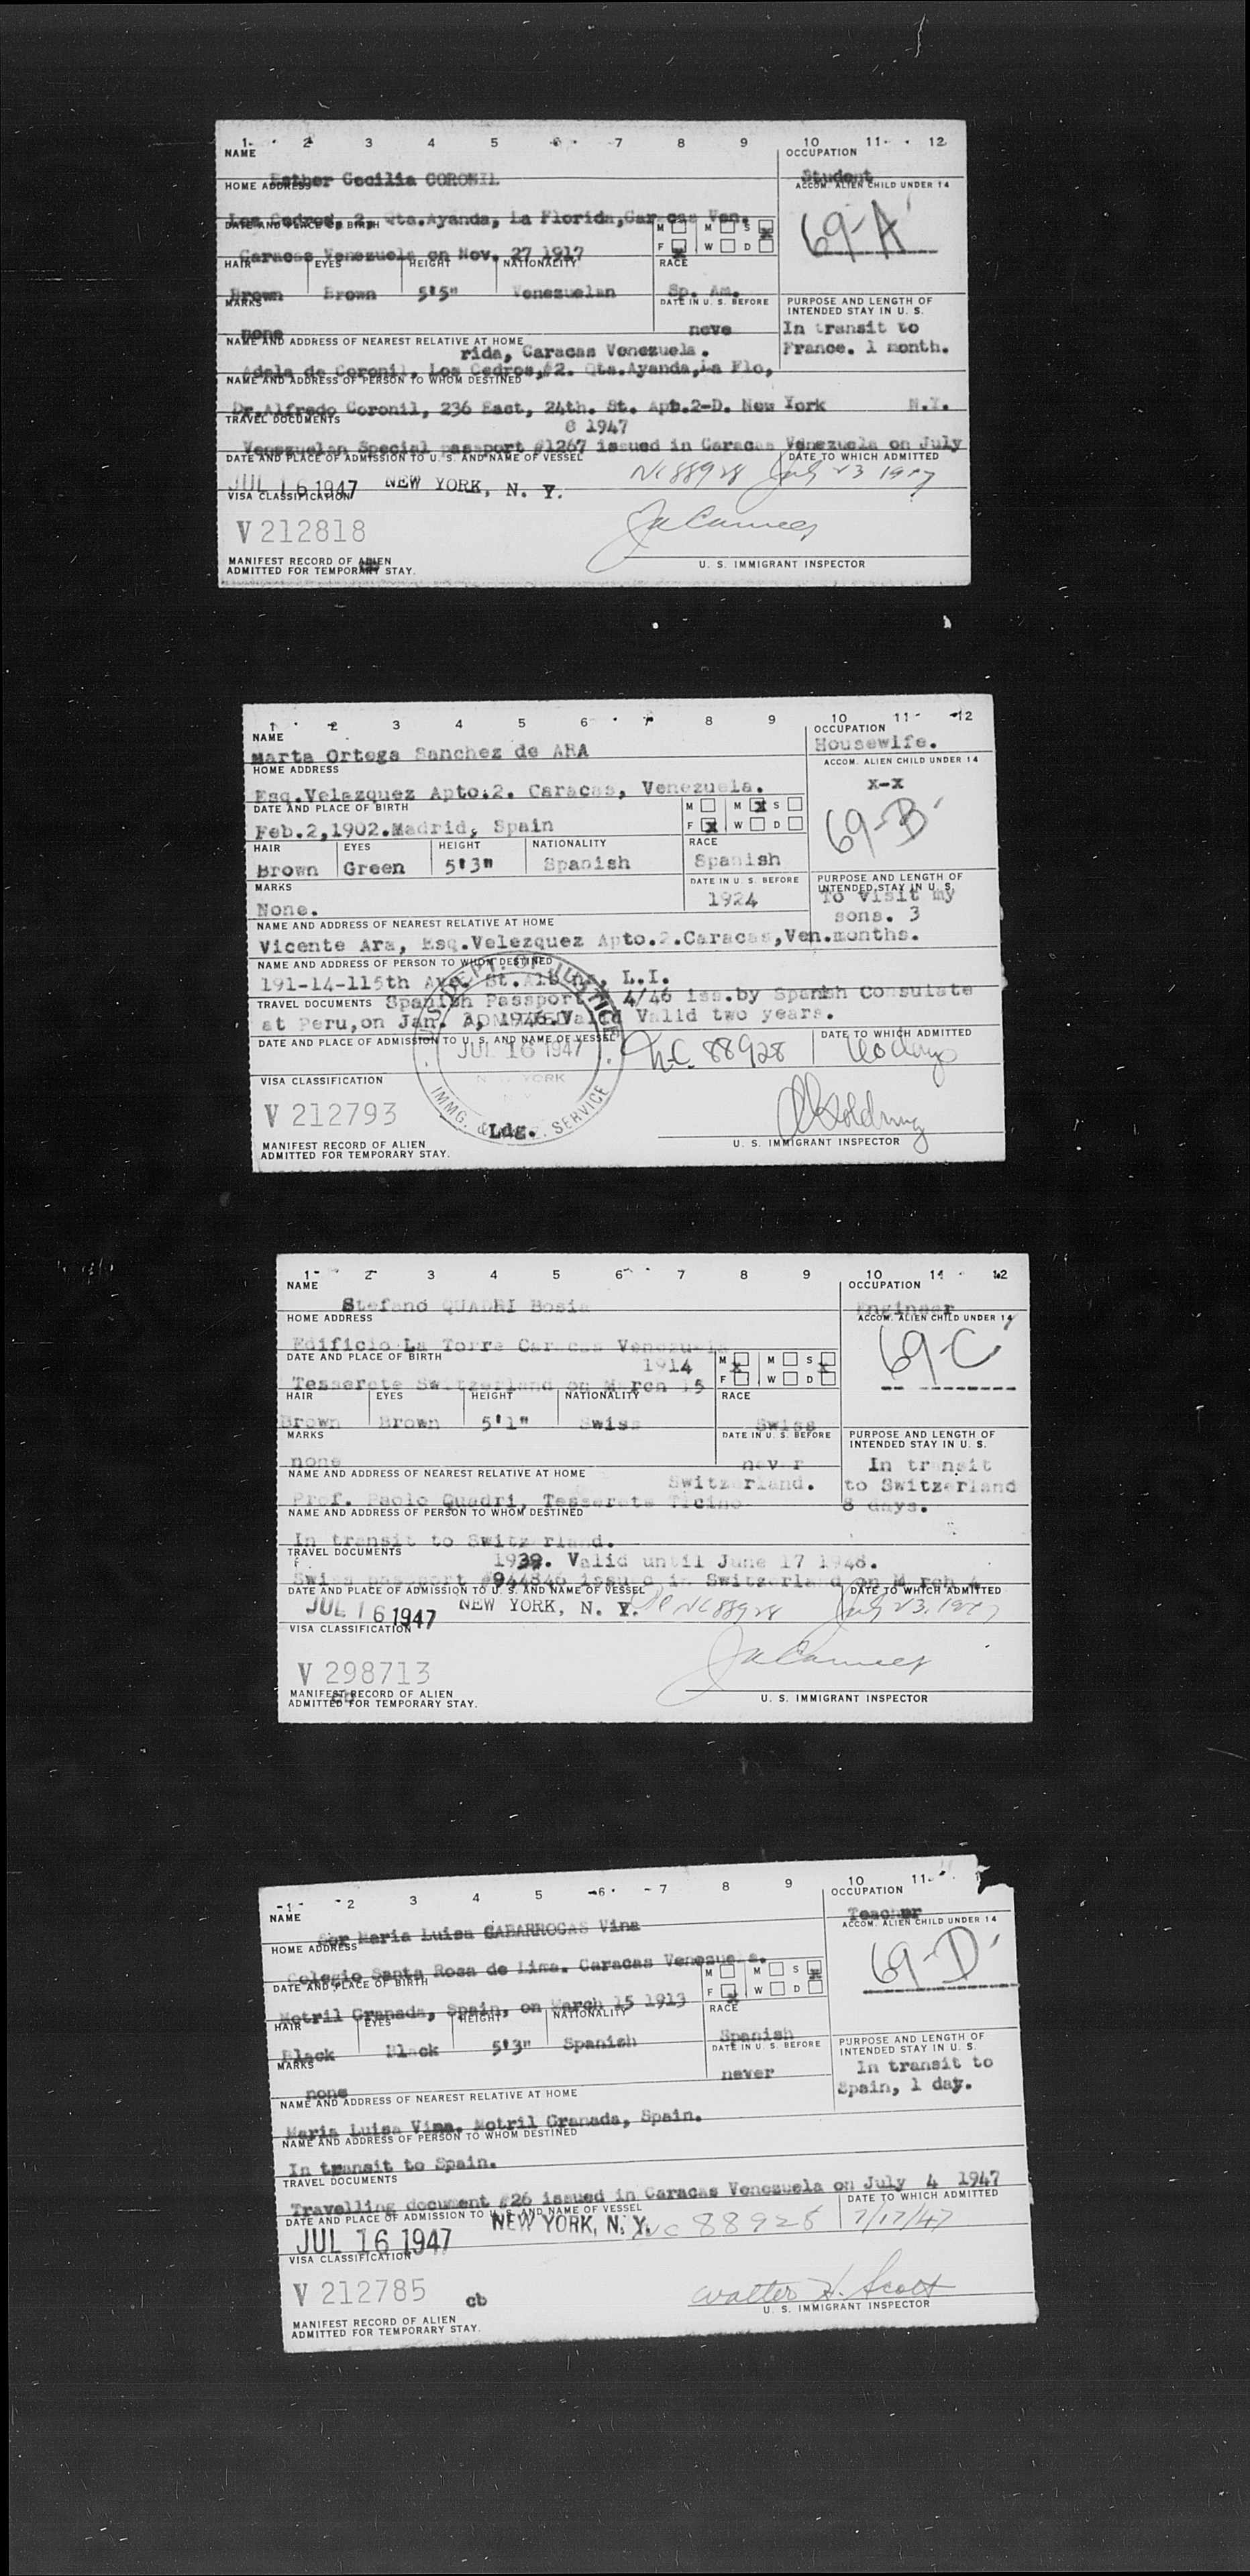 1 2 3 4 5 6 7 8 9 10 11 12
NAME OCCUPATION
Esther Cecilia CORONIL Student
HOME ADDRESS ACCOM. ALIEN CHILD UNDER 14
Los Cedros, 2, Qta.Ayanda, La Florida,Caracas Ven.
DATE AND PLACE OF BIRTH M M S X
69-A
Caracas Venezuela on Nov. 27 1917 F X W D
HAIR EYES HEIGHT NATIONALITY RACE
Brown Brown 5'5" Venezuelan Sp. Am.
MARKS DATE IN U. S. BEFORE PURPOSE AND LENGTH OF
INTENDED STAY IN U. S.
none neve In transit to
NAME AND ADDRESS OF NEAREST RELATIVE AT HOME
rida, Caracas Venezuela. France. 1 month.
Adela de Coronil, Los Cedros,#2. Qta.Ayanda,La Flo,
NAME AND ADDRESS OF PERSON TO WHOM DESTINED
Dr.Alfredo Coronil, 236 East, 24th. St. Apt.2-D. New York N.Y.
TRAVEL DOCUMENTS
8 1947
Venezuelan Special passport #1267 issued in Caracas Venezuela on July
DATE AND PLACE OF ADMISSION TO U. S. AND NAME OF VESSEL DATE TO WHICH ADMITTED
JUL 16 1947 NEW YORK, N. Y. NC88928 July 23 1947
VISA CLASSIFICATION
V 212818
MANIFEST RECORD OF ALIEN
ADMITTED FOR TEMPORARY STAY.
U. S. IMMIGRANT INSPECTOR
1 2 3 4 5 6 7 8 9 10 11 12
NAME OCCUPATION
Marta Ortega Sanchez de ARA Housewife.
HOME ADDRESS ACCOM. ALIEN CHILD UNDER 14
Esq.Velazquez Apto.2. Caracas, Venezuela. X-X
DATE AND PLACE OF BIRTH M M X S
69-B
Feb.2,1902.Madrid, Spain F X W D
HAIR EYES HEIGHT NATIONALITY RACE
Brown Green 5'3" Spanish Spanish
MARKS DATE IN U. S. BEFORE PURPOSE AND LENGTH OF
INTENDED STAY IN U. S.
None. 1924 To visit my
NAME AND ADDRESS OF NEAREST RELATIVE AT HOME sons. 3
Vicente Ara, Esq.Velezquez Apto.2.Caracas,Ven.months.
NAME AND ADDRESS OF PERSON TO WHOM DESTINED
191-14-115th Ave. St.Albans, L.I.
TRAVEL DOCUMENTS Spanish Passport 4/46 iss.by Spanish Consulate
at Peru,on Jan. 1946.Valid Valid two years.
DATE AND PLACE OF ADMISSION TO U. S. AND NAME OF VESSEL DATE TO WHICH ADMITTED
U.S. DEPT. OF JUSTICE
ADMITTED
JUL 16 1947 N.C. 88928 60 days
NEW YORK
IMMG. & SERVICE
VISA CLASSIFICATION
V 212793
Ldg.
MANIFEST RECORD OF ALIEN
ADMITTED FOR TEMPORARY STAY.
U. S. IMMIGRANT INSPECTOR
1 2 3 4 5 6 7 8 9 10 11 12
NAME OCCUPATION
Stefano QUADRI Bosia Engineer
HOME ADDRESS ACCOM. ALIEN CHILD UNDER 14
Edificio La Torre Caracas Venezuela
DATE AND PLACE OF BIRTH 1914 M X M S X
69-C
Tesserete Switzerland on March 15 F W D
HAIR EYES HEIGHT NATIONALITY RACE
Brown Brown 5'1" Swiss Swiss
MARKS DATE IN U. S. BEFORE PURPOSE AND LENGTH OF
INTENDED STAY IN U. S.
none never In transit
NAME AND ADDRESS OF NEAREST RELATIVE AT HOME
Switzerland. to Switzerland
Prof. Paolo Quadri, Tesserete Ticino 8 days.
NAME AND ADDRESS OF PERSON TO WHOM DESTINED
In transit to Switzerland.
TRAVEL DOCUMENTS
1939. Valid until June 17 1948.
Swiss passport #944846 issued in Switzerland on March 4
DATE AND PLACE OF ADMISSION TO U. S. AND NAME OF VESSEL DATE TO WHICH ADMITTED
JUL 16 1947 NEW YORK, N. Y. NC88928 July 23, 1947
VISA CLASSIFICATION
V 298713
MANIFEST RECORD OF ALIEN
ADMITTED FOR TEMPORARY STAY.
U. S. IMMIGRANT INSPECTOR
1 2 3 4 5 6 7 8 9 10 11
NAME OCCUPATION
Sor Maria Luisa GABARROCAS Vina Teacher
HOME ADDRESS ACCOM. ALIEN CHILD UNDER 14
Colegio Santa Rosa de Lima. Caracas Venezuela.
DATE AND PLACE OF BIRTH M M S X
69-D
Motril Granada, Spain, on March 15 1913 F X W D
HAIR EYES HEIGHT NATIONALITY RACE
Black Black 5'3" Spanish Spanish
MARKS DATE IN U. S. BEFORE PURPOSE AND LENGTH OF
INTENDED STAY IN U. S.
none never In transit to
NAME AND ADDRESS OF NEAREST RELATIVE AT HOME Spain, 1 day.
Maria Luisa Vina. Motril Granada, Spain.
NAME AND ADDRESS OF PERSON TO WHOM DESTINED
In transit to Spain.
TRAVEL DOCUMENTS
Travelling document #26 issued in Caracas Venezuela on July 4 1947
DATE AND PLACE OF ADMISSION TO U. S. AND NAME OF VESSEL DATE TO WHICH ADMITTED
JUL 16 1947 NEW YORK, N. Y. NC 88928 7/17/47
VISA CLASSIFICATION
V 212785 cb
Walter H. Scott
MANIFEST RECORD OF ALIEN
ADMITTED FOR TEMPORARY STAY.
U. S. IMMIGRANT INSPECTOR